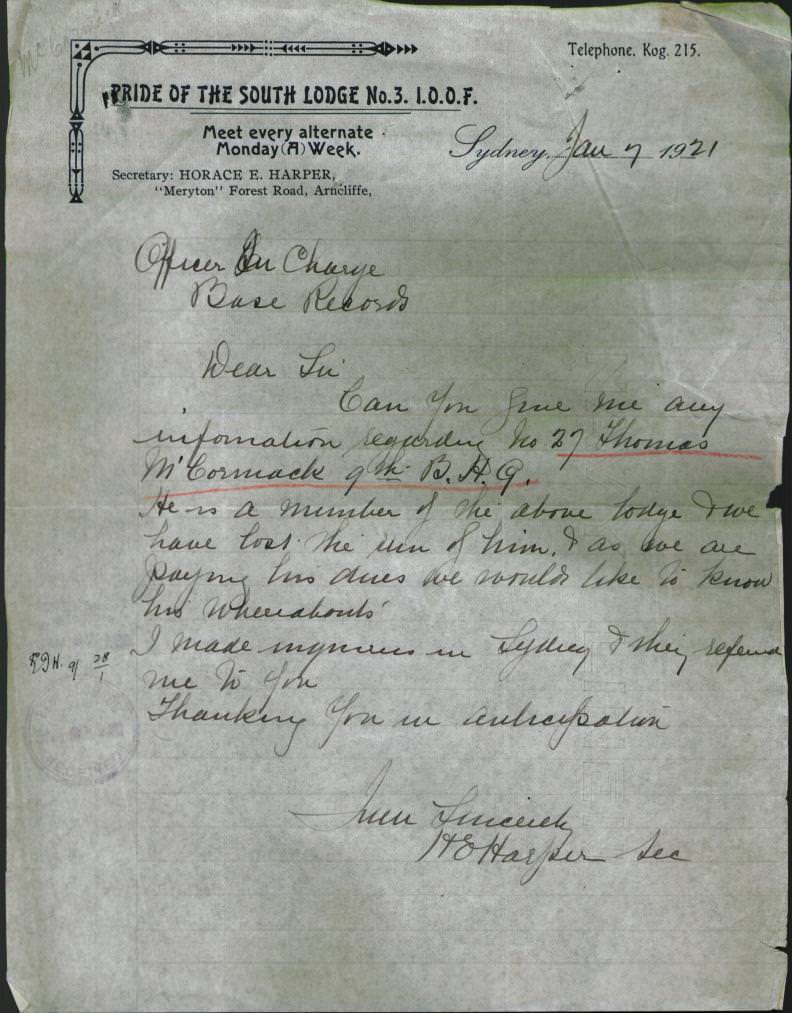 Telephone. Kog. 215.
PRIDE OF THE SOUTH LODGE No. 3. I.O.O.F.
Meet every alternate
Monday (A) Week.
Sydney, Jan 7 1921
Secretary: HORACE E. HARPER,
"Meryton" Forest Road, Arncliffe,
Officer In Charge
Base Records
Dear Sir
Can you give me any
information regarding No 27 Thomas
McCormack 9th B.H.Q.
He is a member of the above lodge & we
have lost the run of him, & as we are
paying his dues we would like to know
his whereabouts
I made inquiries in Sydney & they refered
me to you
Thanking You in anticipation
28/1
RECEIVED
Your Sincerely
H E Harper Sec